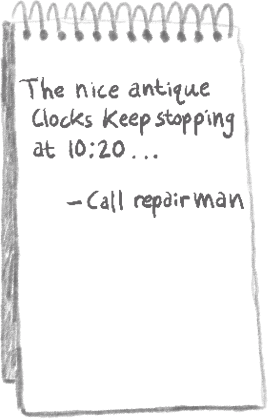 The nice antique
Clocks Keep stopping
at 10:20...
- Call repairman